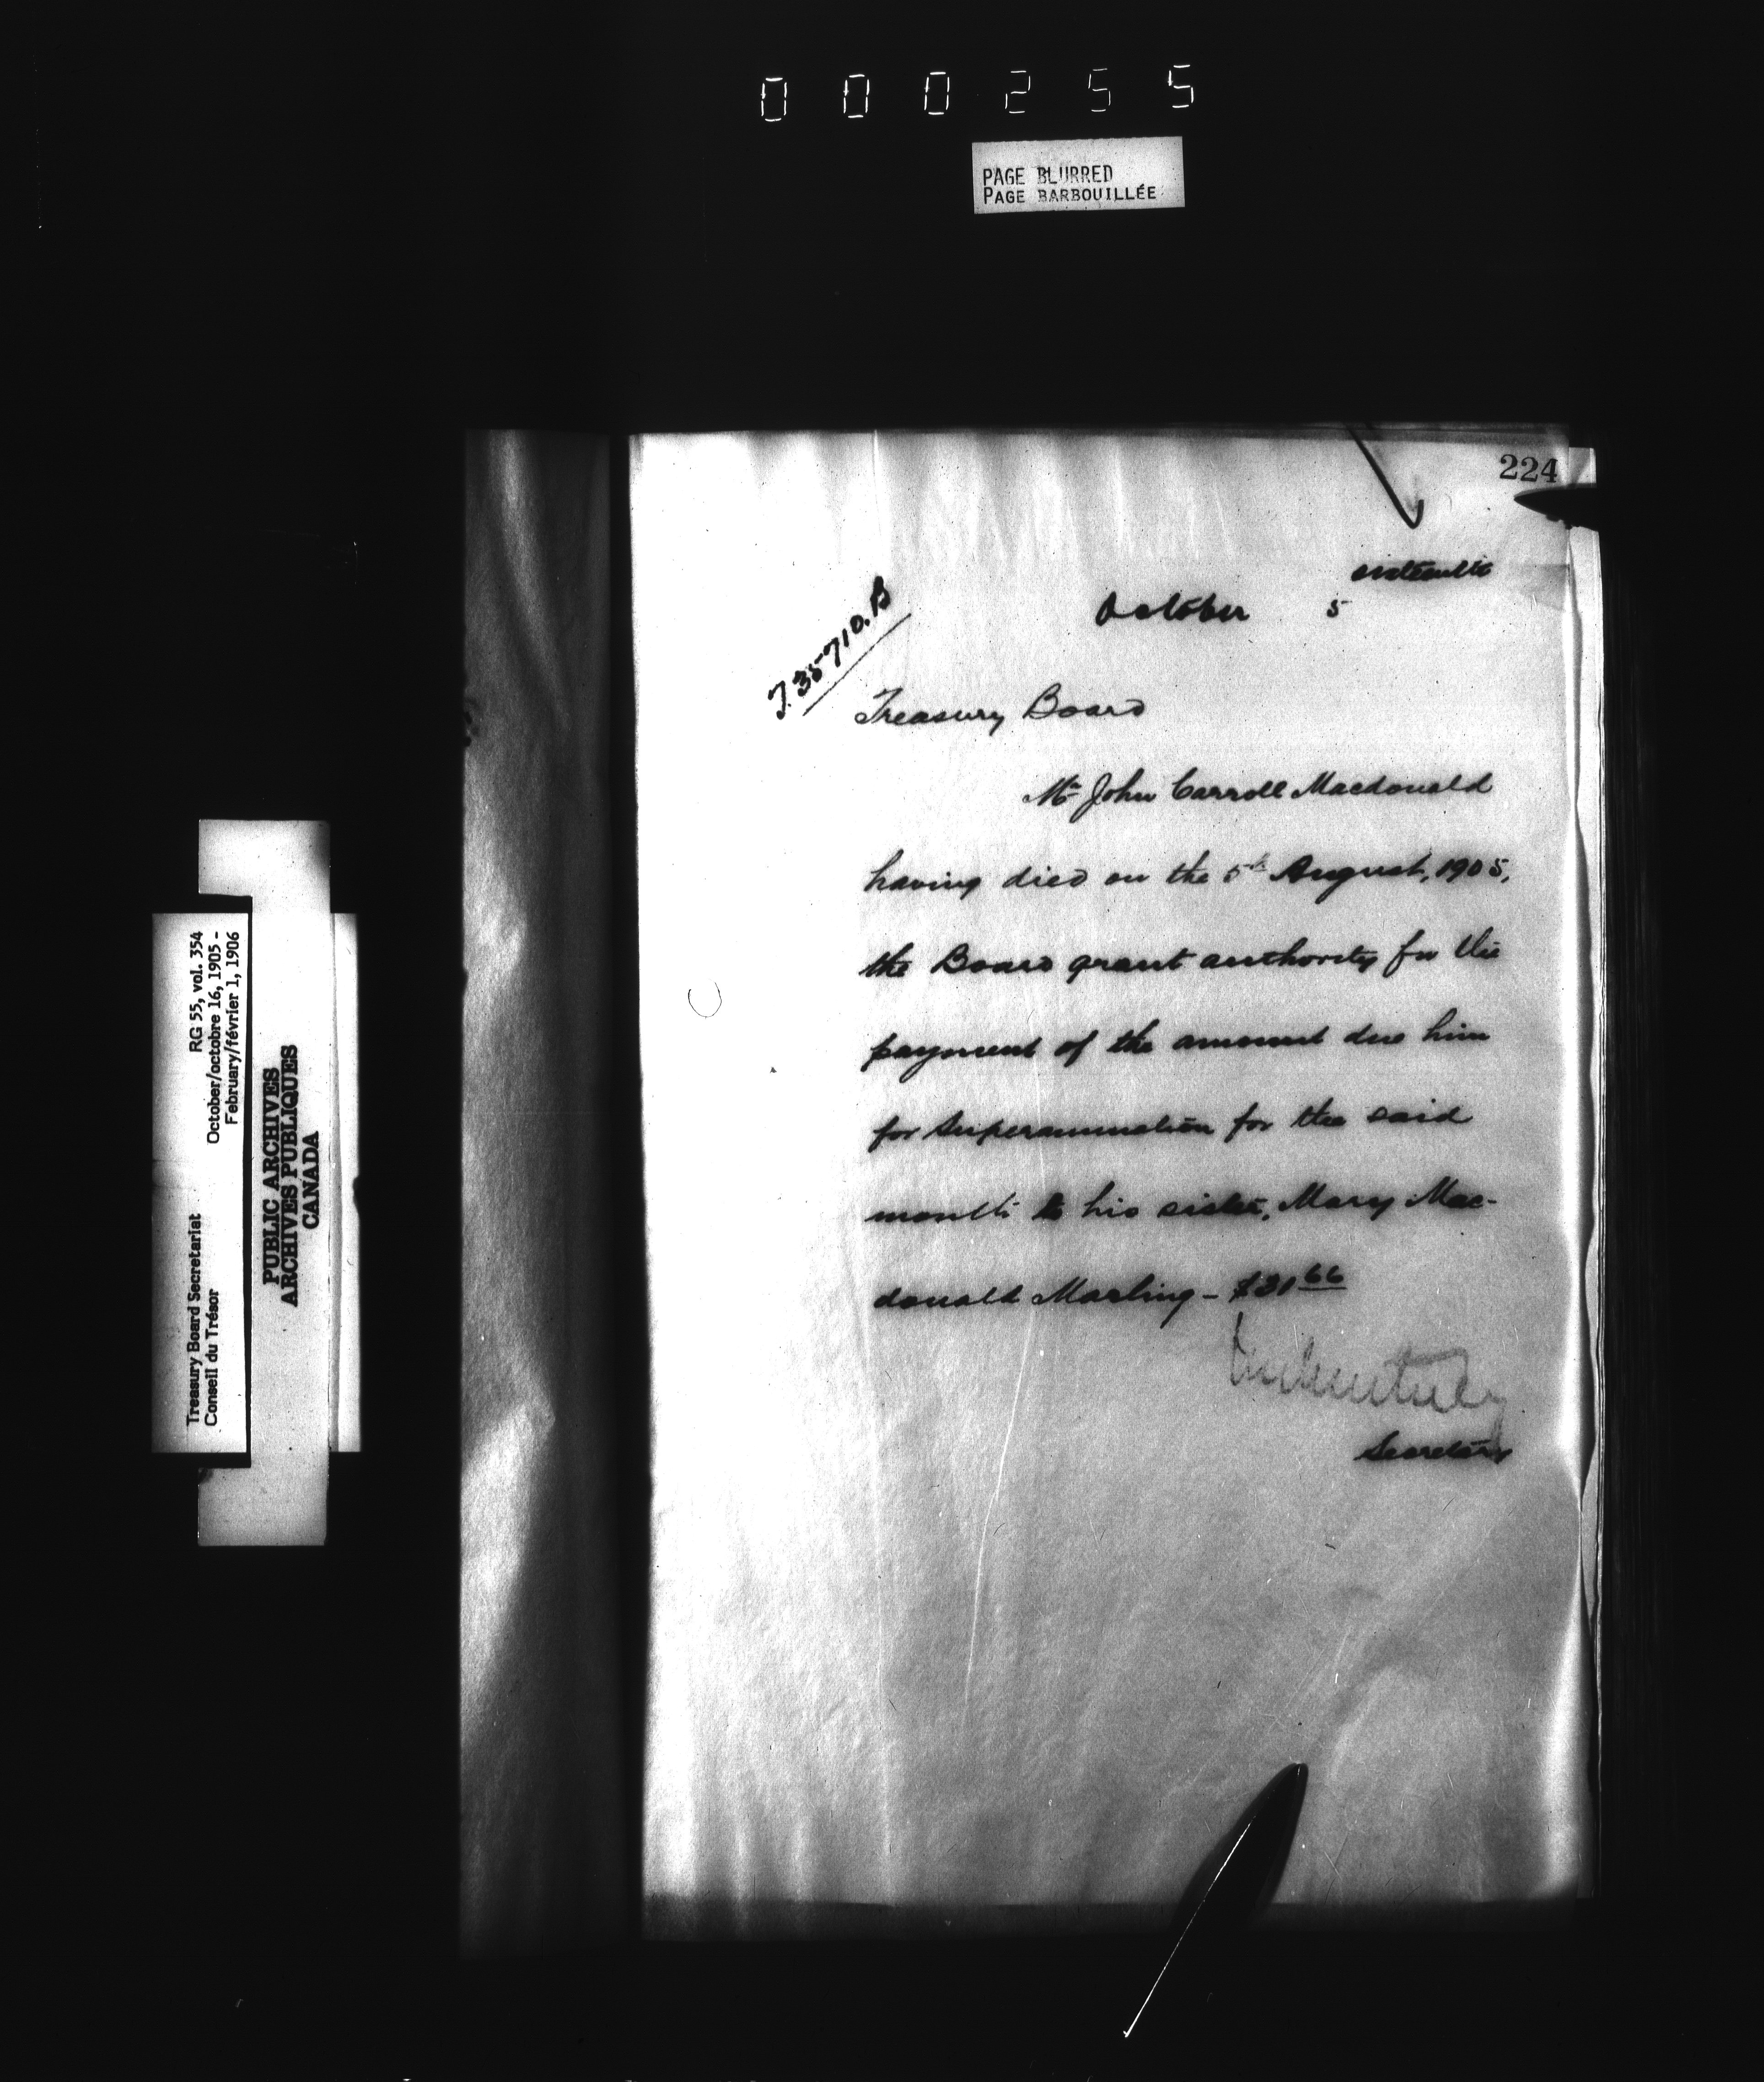 000255
PAGE BLURRED
PAGE BARBOUILLÉE
224
sixteenth
October 5
T.35710.B
Treasury Board
Mr John Carroll Macdonald
having died on the 5th August, 1905,
the Board grant authority for the
payment of the amount due him
for Superannuation for the said
month to his sister, Mary Mac-
donald Marling - $31 66
Secretary
Treasury Board Secretariat RG 55, vol. 354
Conseil du Trésor October/octobre 16, 1905 -
February/février 1, 1906
PUBLIC ARCHIVES
ARCHIVES PUBLIQUES
CANADA